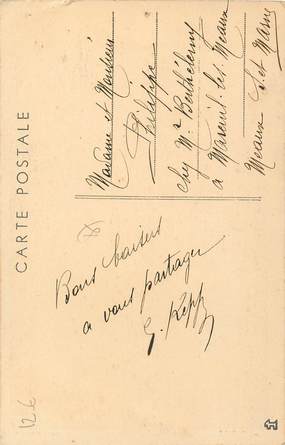 CARTE POSTALE
Madame et Monsieur
Philippe
chez Mr Berthélemy
à Mareuil-les-Meaux
Meaux S. et Marne
Bons baisers
a vous partager
G. Kepp
12 €